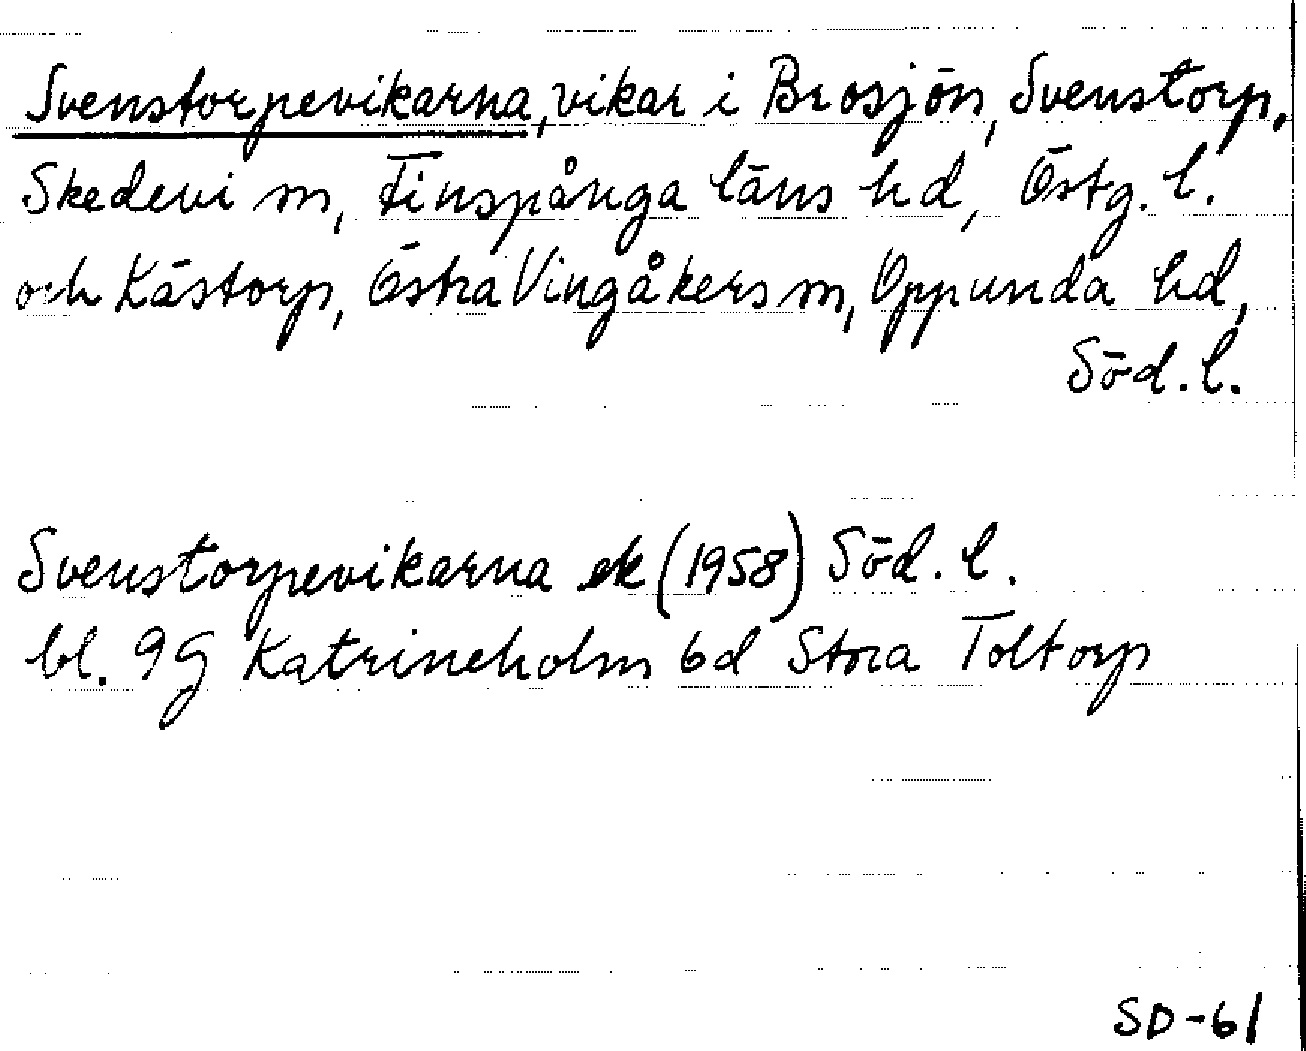 Svenstorpevikarna, vikar i Brosjön, Svenstorp,
Skedevi sn, Finspånga läns hd, Östg. l.
och Kästorp, Östra Vingåkers sn, Oppunda hd,
Söd. l.
Svenstorpevikarna ek (1958) Söd. l.
bl. 9G Katrineholm 6d Stora Toltorp
SD-61